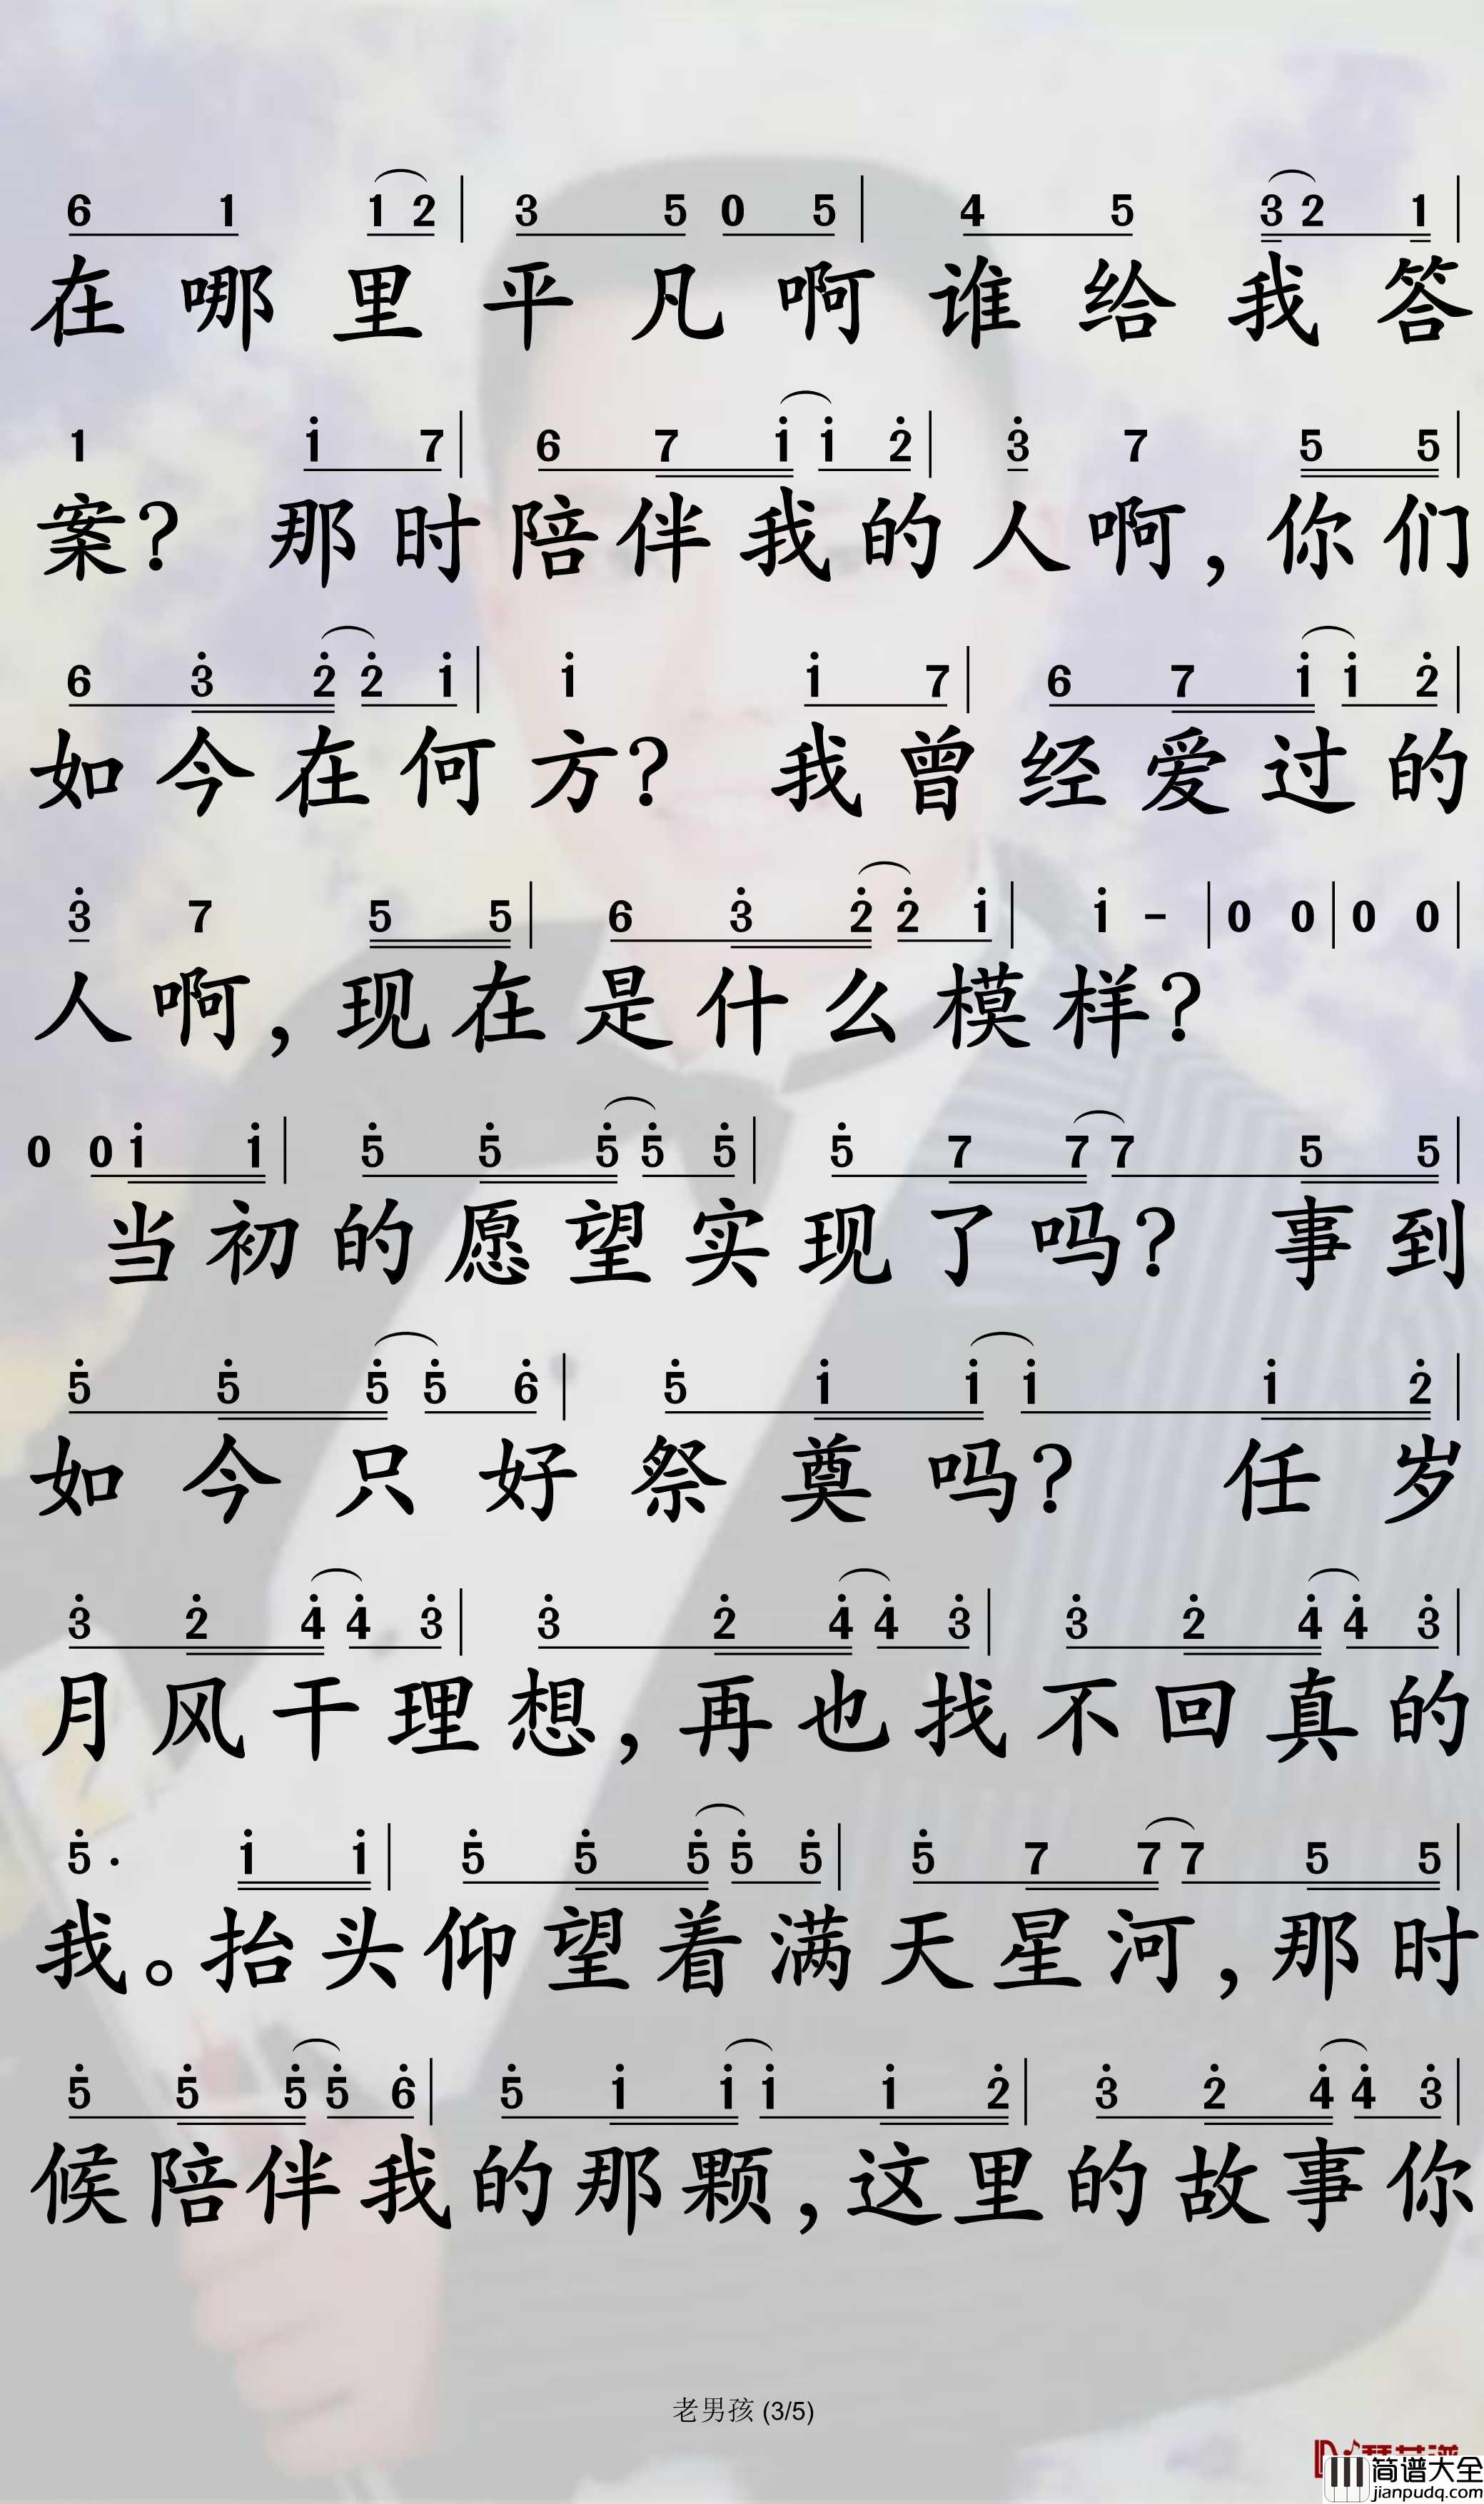 6 1 1 2 | 3 5 0 5 | 4 5 3 2 1 |
在哪里平凡啊谁给我答
1 i 7 | 6 7 i i 2̇ | 3̇ 7 5 5 |
案? 那时陪伴我的人啊,你们
6 3̇ 2̇ 2̇ i | i i 7 | 6 7 i i 2̇ |
如今在何方? 我曾经爱过的
3̇ 7 5 5 | 6 3̇ 2̇ 2̇ i | i - | 0 0 | 0 0 |
人啊,现在是什么模样?
0 0 i i | 5̇ 5̇ 5̇ 5̇ 5̇ | 5̇ 7 7 7 5 5 |
当初的愿望实现了吗? 事到
5̇ 5̇ 5̇ 5̇ 6̇ | 5̇ i i i i 2̇ |
如今只好祭奠吗? 任岁
3̇ 2̇ 4̇ 4̇ 3̇ | 3̇ 2̇ 4̇ 4̇ 3̇ | 3̇ 2̇ 4̇ 4̇ 3̇ |
月风干理想,再也找不回真的
5̇ · i i | 5̇ 5̇ 5̇ 5̇ 5̇ | 5̇ 7 7 7 5 5 |
我。抬头仰望着满天星河,那时
5̇ 5̇ 5̇ 5̇ 6̇ | 5̇ i i i i 2̇ | 3̇ 2̇ 4̇ 4̇ 3̇ |
候陪伴我的那颗,这里的故事你
老男孩 (3/5)
简谱大全
jianpudq.com